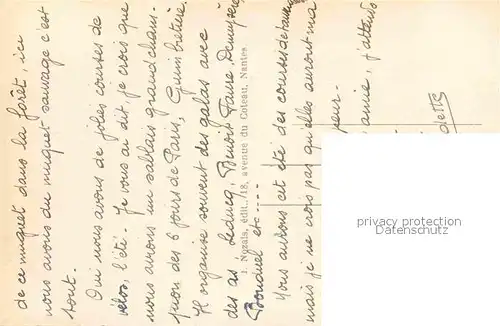 de ce muguet dans la forêt, ici
nous avons du muguet sauvage c'est
tout.
Oui nous avons de jolies courses de
vélos, l'été. Je vous ai dit, je crois que
nous avions un sablais grand cham-
pion des 6 jours de Paris, Guimbretière.
Il organise souvent des galas avec
des as, Leducq, Benoit Faure, Demuysère,
Bonduel etc----
Vous aurons cet été des courses de taureaux
mais je ne crois pas qu'elles auront ma
peur.
amie, j'attends
dette
J. Nozais, édit., 18, avenue du Coteau, Nantes
privacy protection
www.ansichtskarten-lexikon.de